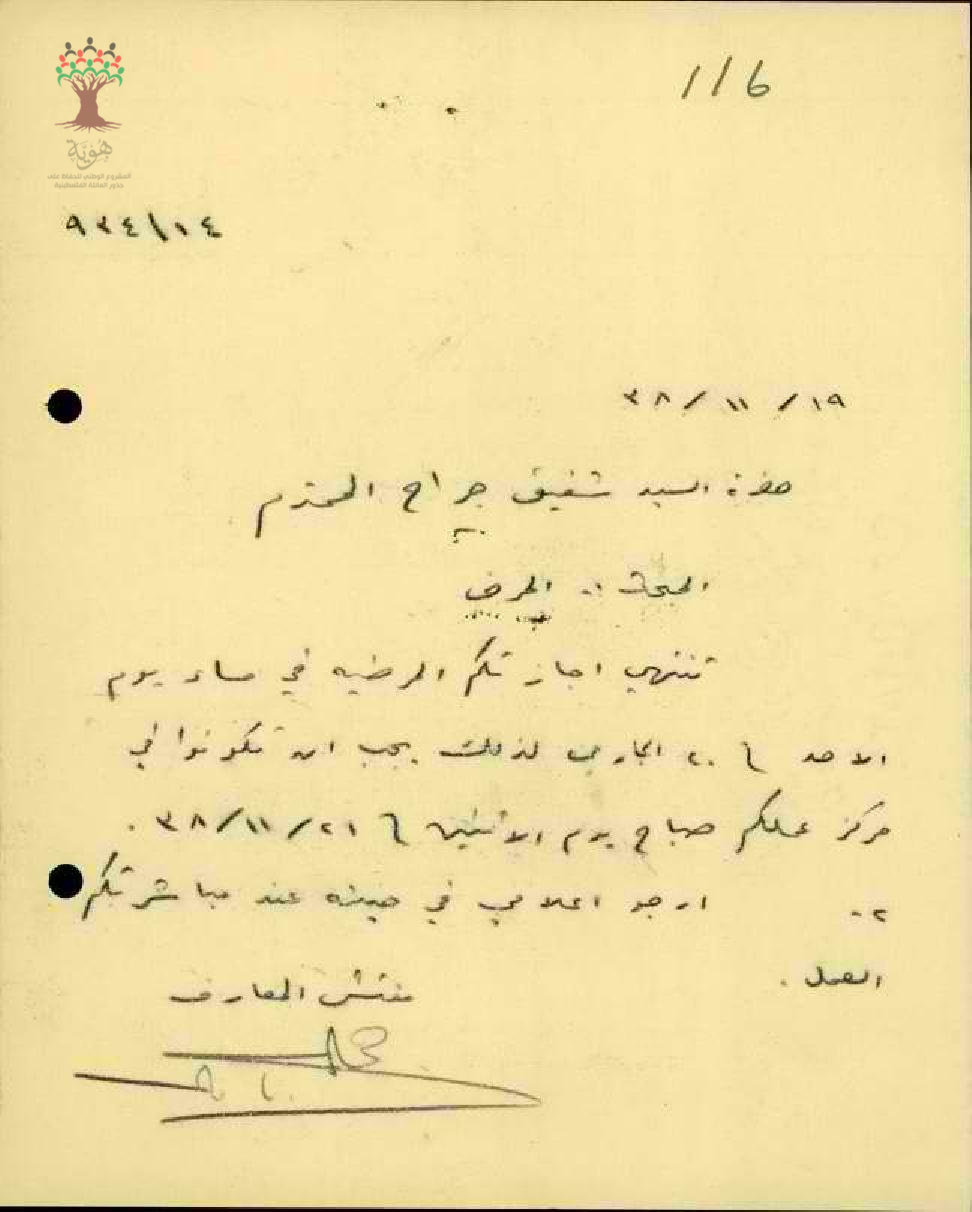 116
هُوِيَّة
المشروع الوطني للحفاظ على
جذور العائلة الفلسطينية
٩٣٤/١٤
١٩/ ١١/ ٣٨
حضرة السيد شفيق جراح المحترم
المبحث :- المرض
تنتهي اجازتكم المرضيه في مساء يوم
الاحد ٢٠ الجاري لذلك يجب ان تكونوا في
مركز عملكم صباح يوم الاثنين ٢١/ ١١/ ٣٨ .
٢- ارجو اعلامي في حينه عند مباشرتكم
العمل .
مفتش المعارف